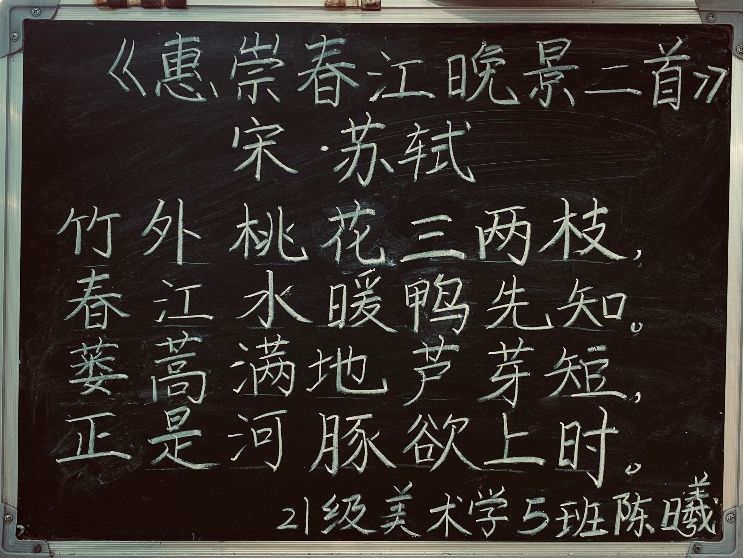 《惠崇春江晚景二首》
宋·苏轼
竹外桃花三两枝,
春江水暖鸭先知。
蒌蒿满地芦芽短,
正是河豚欲上时。
21级美术学5班陈曦